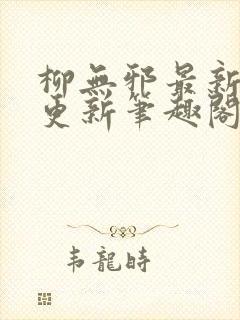 柳無邪最新
更新筆趣閣
韦龍時